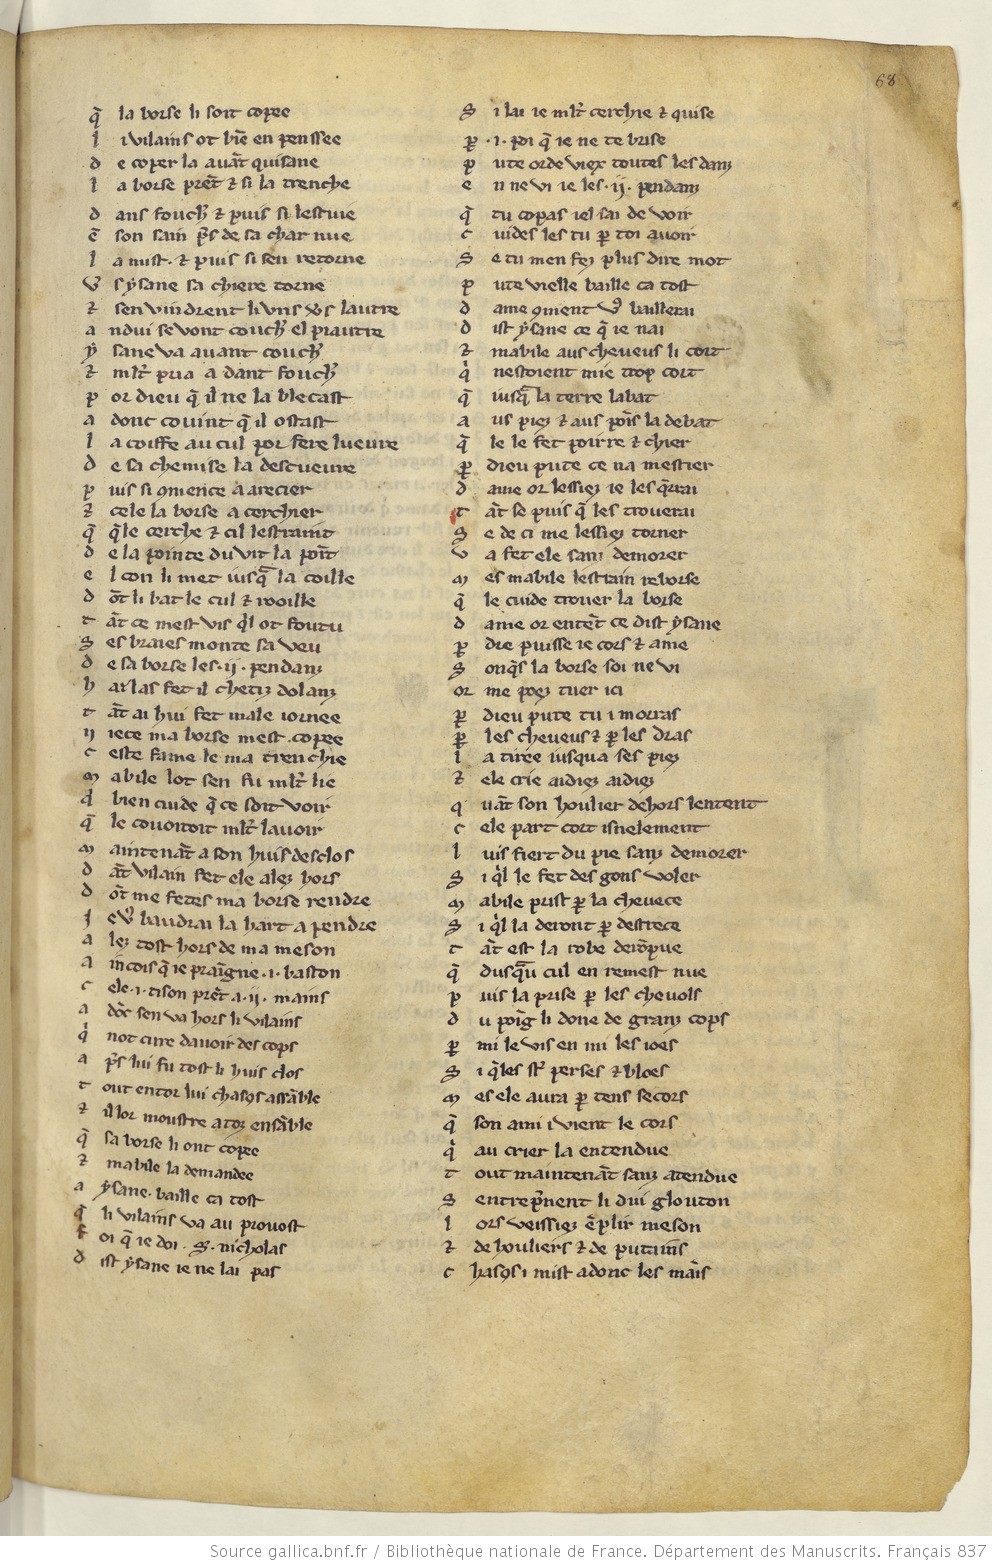 68
q̃ la borse li soit copee
l i vilains ot biẽ en penssee
d e coper la auãt quisane
l a borse prẽt ⁊ si la trenche
d ans fouch᷑ ⁊ puis si lestuie
ẽ son sain p̃s de sa char nue
l a mist · ⁊ puis si sen retorne
v᷑ s ysane sa chiere torne
⁊ sen vindrent li vns v᷑s lautre
a ndui se vont couch᷑ el piautre
y sane va auant couch᷑
⁊ ml̃t pria a dant fouch᷑
p or dieu q̃ il ne la blecast
a donc couint q̃ il ostast
l a coiffe au cul por fere lueure
d e sa chemise la descueure
p uis si ꝯmence a arecier
⁊ cele la borse a cerchier
q̃ q̃le cerche ⁊ cil lestraint
d e la pointe du vit la point
e l con li met iusq̃ la coille
d õt li bat le cul ⁊ rooille
t ãt ce mest vis qͥl ot foutu
s es braies monte sa veu
d e sa borse les · ij · pendanz
h aĩ las fet il chetiz dolanz
t ãt ai hui fet male iornee
n iece ma borse mest copee
c este fame le ma trenchie
m abile lot sen fu ml̃t lie
qͥ bien cuide q̃ ce soit voir
q̃ le couoitoit ml̃t lauoir
m aintenãt a son huis desclos
d ãt vilain fet ele alez hors
d õt me fetes ma borse rendre
j e v᷑ baudrai la hart a pendre
a lez tost hors de ma meson
a incois q̃ ie praigne · i · baston
c ele · i · tison prẽt a · ij · mains
a dõc sen va hors li vilains
qͥ not cure dauoir des cops
a p̃s lui fu tost li huis clos
t out entor lui chasꝯs assãble
⁊ il lor moustre a toz ensãble
q̃ sa borse li ont copee
⁊ mabile la demandee
a ysane · baille ca tost
q̃ li vilains va au prouost
f oi q̃ ie doi · S · nicholas
d ist ysane ie ne lai pas
s i lai ie ml̃t cerchie ⁊ quise
ꝑ · i · poi q̃ ie ne te brise
p ute orde viex toutes les danz
e n ne vi ie les · ij · pendanz
q̃ tu copas iel sai de voir
c uides les tu ꝑ toi auoir
s e tu men fez plus dire mot
p ute vielle baille ca tost
d ame ꝯment v᷑ baillerai
d ist ysane ce q̃ ie nai
⁊ mabile aus cheueus li cort
qͥ nestoient mie trop cort
q̃ iusq̃ la terre labat
a us piez ⁊ aus poĩs la debat
q̃ le le fet poirre ⁊ chier
ꝑ dieu pute ce na mestier
d ame or lessiez ie les q̃rrai
t ãt se puis q̃ les trouerai
s e de ci me lessiez torner
v a fet ele sanz demorer
m es mabile lestrain reborse
q̃ le cuide trouer la borse
d ame or entẽt ce dist ysane
ꝑ dre puisse ie cors ⁊ ame
s onq̃s la borse soi ne vi
or me poez tuer ici
ꝑ dieu pute tu i morras
ꝑ les cheueus ⁊ ꝑ les dras
l a tiree iusqua ses piez
⁊ ele crie aidiez aidiez
q uãt son houlier dehors lentent
c ele part cort isnelement
l uis fiert du pie sanz demorer
s i qͥl le fet des gons voler
m abile prist ꝑ la cheuece
s i qͥl la deront ꝑ destrece
t ãt est la robe derõpue
q̃ dusq̃u cul en remest nue
p uis la prise ꝑ les cheuols
d u poĩg li done de granz cops
ꝑ mi le vis en mi les ioes
s i q̃les sõt perses ⁊ bloes
m es ele aura ꝑ tens secors
q̃ son ami i vient le cors
qͥ au crier la entendue
t out maintenãt sanz atendue
s entrep̃nent li dui glouton
l ors veissiez ẽplir meson
⁊ de houliers ⁊ de putains
c hasꝯs i mist adonc les maĩs
Source gallica.bnf.fr / Bibliothèque nationale de France. Département des Manuscrits. Français 837